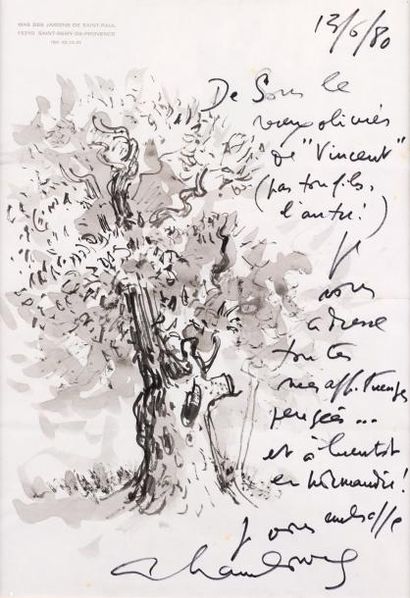 MAS DES JARDINS DE SAINT-PAUL
13210 SAINT-REMY-DE-PROVENCE
13/6/80
De Sous le
vieux olivier
de "Vincent"
(pas ton fils,
l'autre!)
Je
vous
adresse
toutes
mes affectueuses
pensées...
et à bientôt
en Normandie!
Je vous embrasse